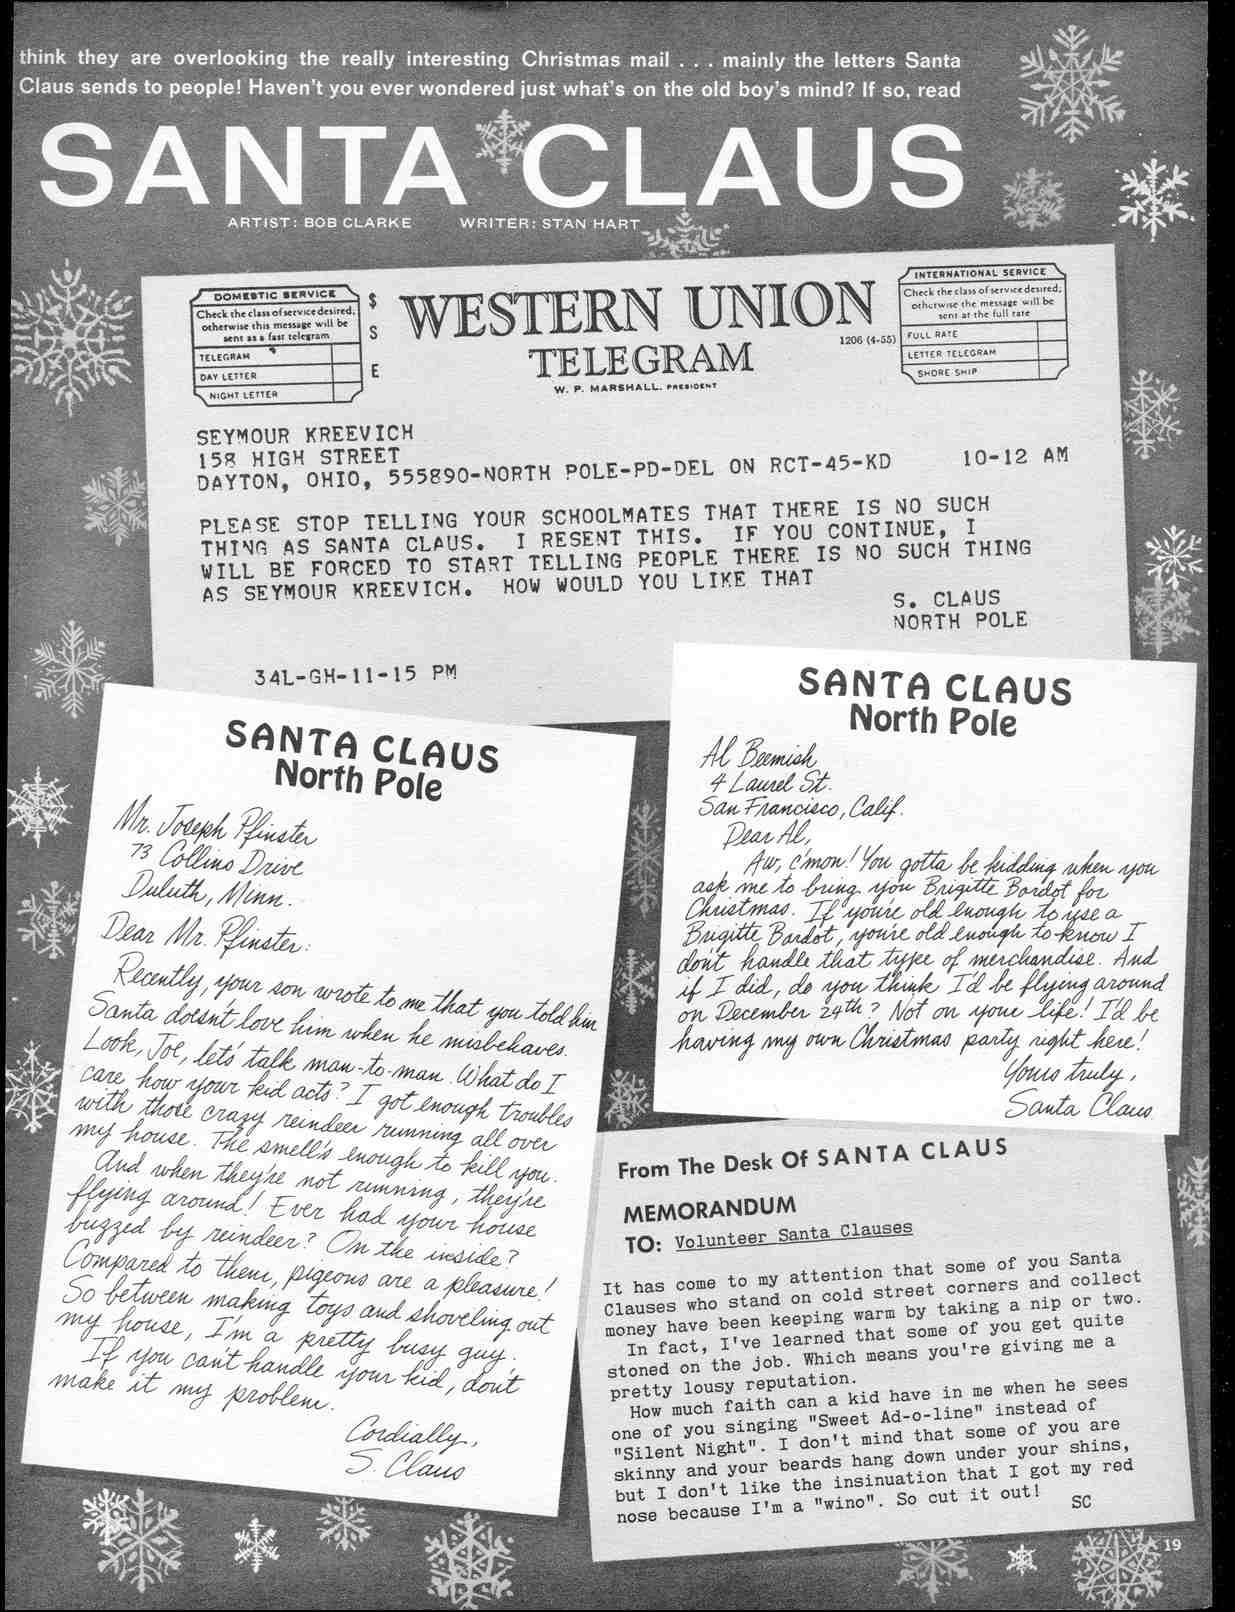 think they are overlooking the really interesting Christmas mail . . . mainly the letters Santa
Claus sends to people! Haven't you ever wondered just what's on the old boy's mind? If so, read
SANTA CLAUS
ARTIST: BOB CLARKE WRITER: STAN HART
DOMESTIC SERVICE
Check the class of service desired;
otherwise this message will be
sent as a fast telegram
TELEGRAM
DAY LETTER
NIGHT LETTER
$
S
E
WESTERN UNION
TELEGRAM
1206 (4-55)
W. P. MARSHALL, PRESIDENT
INTERNATIONAL SERVICE
Check the class of service desired;
otherwise the message will be
sent at the full rate
FULL RATE
LETTER TELEGRAM
SHORE SHIP
SEYMOUR KREEVICH
158 HIGH STREET
DAYTON, OHIO, 555890-NORTH POLE-PD-DEL ON RCT-45-KD 10-12 AM
PLEASE STOP TELLING YOUR SCHOOLMATES THAT THERE IS NO SUCH
THING AS SANTA CLAUS. I RESENT THIS. IF YOU CONTINUE, I
WILL BE FORCED TO START TELLING PEOPLE THERE IS NO SUCH THING
AS SEYMOUR KREEVICH. HOW WOULD YOU LIKE THAT
S. CLAUS
NORTH POLE
34L-GH-11-15 PM
SANTA CLAUS
North Pole
Mr. Joseph Pfinster
73 Collins Drive
Duluth, Minn.
Dear Mr. Pfinster:
Recently, your son wrote to me that you told him
Santa doesn't love him when he misbehaves.
Look, Joe, let's talk man-to-man. What do I
care how your kid acts? I got enough troubles
with those crazy reindeer running all over
my house. The smell's enough to kill you.
And when they're not running, they're
flying around! Ever had your house
buzzed by reindeer? On the inside?
Compared to them, pigeons are a pleasure!
So between making toys and shoveling out
my house, I'm a pretty busy guy.
If you can't handle your kid, don't
make it my problem.
Cordially,
S. Claus
SANTA CLAUS
North Pole
Al Beemish
4 Laurel St.
San Francisco, Calif.
Dear Al,
Aw, c'mon! You gotta be kidding when you
ask me to bring you Brigitte Bardot for
Christmas. If you're old enough to use a
Brigitte Bardot, you're old enough to know I
don't handle that type of merchandise. And
if I did, do you think I'd be flying around
on December 24th? Not on your life! I'd be
having my own Christmas party right here!
Yours truly,
Santa Claus
From The Desk Of SANTA CLAUS
MEMORANDUM
TO: Volunteer Santa Clauses
It has come to my attention that some of you Santa
Clauses who stand on cold street corners and collect
money have been keeping warm by taking a nip or two.
In fact, I've learned that some of you get quite
stoned on the job. Which means you're giving me a
pretty lousy reputation.
How much faith can a kid have in me when he sees
one of you singing "Sweet Ad-o-line" instead of
"Silent Night". I don't mind that some of you are
skinny and your beards hang down under your shins,
but I don't like the insinuation that I got my red
nose because I'm a "wino". So cut it out!
SC
19